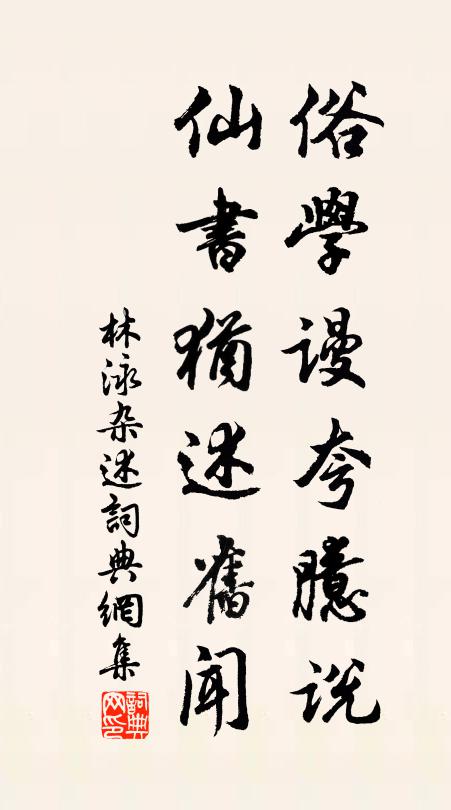 俗學謾夸臆説
仙書猶述舊聞
林泳杂述詞典網集
詞典网印